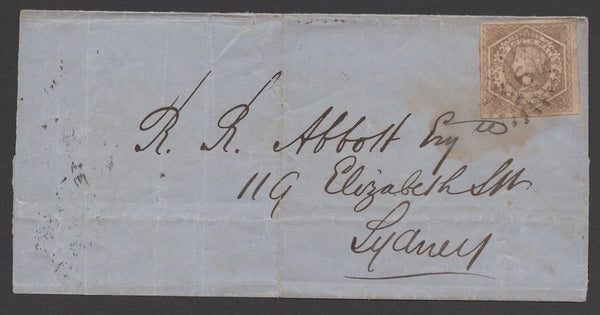 R. R. Abbott Esqre
119 Elizabeth St
Sydney